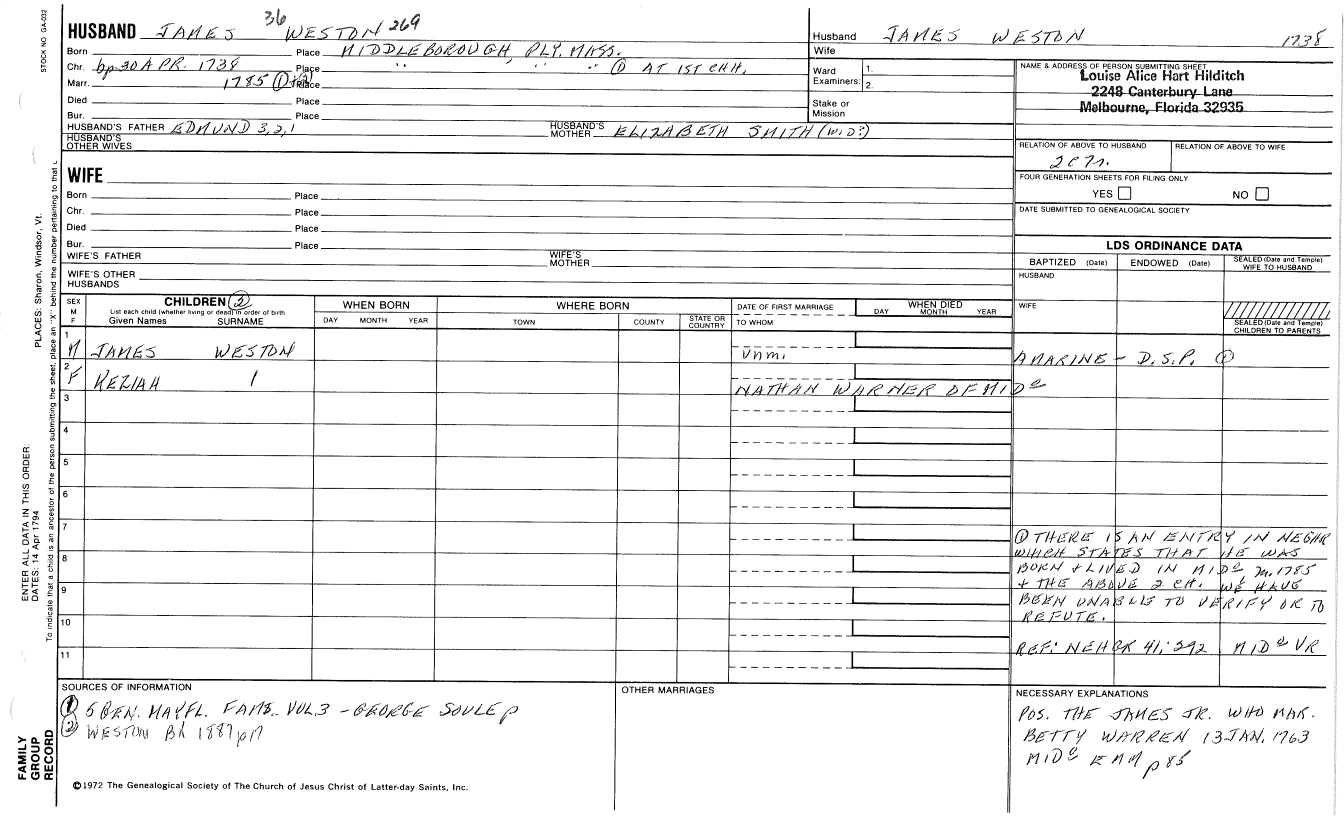 STOCK NO. GA-032
HUSBAND JAMES 36 WESTON 269
Born Place MIDDLEBOROUGH, PLY. MASS.
Chr. bp 30 APR. 1738 Place " " " ① AT 1ST CHH.
Marr. 1785 ① (2) Place
Died Place
Bur. Place
HUSBAND'S FATHER EDMUND 3,2,1 HUSBAND'S MOTHER ELIZABETH SMITH (W.D?)
HUSBAND'S OTHER WIVES
WIFE
Born Place
Chr. Place
Died Place
Bur. Place
WIFE'S FATHER WIFE'S MOTHER
WIFE'S OTHER HUSBANDS
Husband JAMES WESTON 1738
Wife
Ward 1.
Examiners: 2.
Stake or
Mission
NAME & ADDRESS OF PERSON SUBMITTING SHEET
Louise Alice Hart Hilditch
2248 Canterbury Lane
Melbourne, Florida 32935
RELATION OF ABOVE TO HUSBAND RELATION OF ABOVE TO WIFE
FOUR GENERATION SHEETS FOR FILING ONLY
YES NO
DATE SUBMITTED TO GENEALOGICAL SOCIETY
LDS ORDINANCE DATA
BAPTIZED (Date) ENDOWED (Date) SEALED (Date and Temple) WIFE TO HUSBAND
HUSBAND
WIFE
SEALED (Date and Temple) CHILDREN TO PARENTS
SEX M F
CHILDREN ②
List each child (whether living or dead) in order of birth
Given Names SURNAME
WHEN BORN
DAY MONTH YEAR
WHERE BORN
TOWN COUNTY STATE OR COUNTRY
DATE OF FIRST MARRIAGE
TO WHOM
WHEN DIED
DAY MONTH YEAR
1 M JAMES WESTON unm. A MARINE - D.S.P. ①
2 F KEZIAH NATHAN WARNER OF MIDº
3
4
5
6
7
8
9
10
11
① THERE IS AN ENTRY IN NEGHR
WHICH STATES THAT HE WAS
BORN + LIVED IN MIDº m. 1785
+ THE ABOVE 2 CH. WE HAVE
BEEN UNABLE TO VERIFY OR TO
REFUTE.
REF: 41; 292 MIDº VR
SOURCES OF INFORMATION
① 5 GEN. MAYFL. FAMS. VOL.3 - GEORGE SOULE p
② WESTON BK 1887 p17
OTHER MARRIAGES
NECESSARY EXPLANATIONS
POS. THE JAMES JR. WHO MAR.
BETTY WARREN 13 JAN. 1763
MIDº p 85
©1972 The Genealogical Society of The Church of Jesus Christ of Latter-day Saints, Inc.
PLACES: Sharon, Windsor, Vt.
ENTER ALL DATA IN THIS ORDER:
DATES: 14 Apr 1794
To indicate that a child is an ancestor of the person submitting the sheet, place an "X" behind the number pertaining to that
FAMILY
GROUP
RECORD